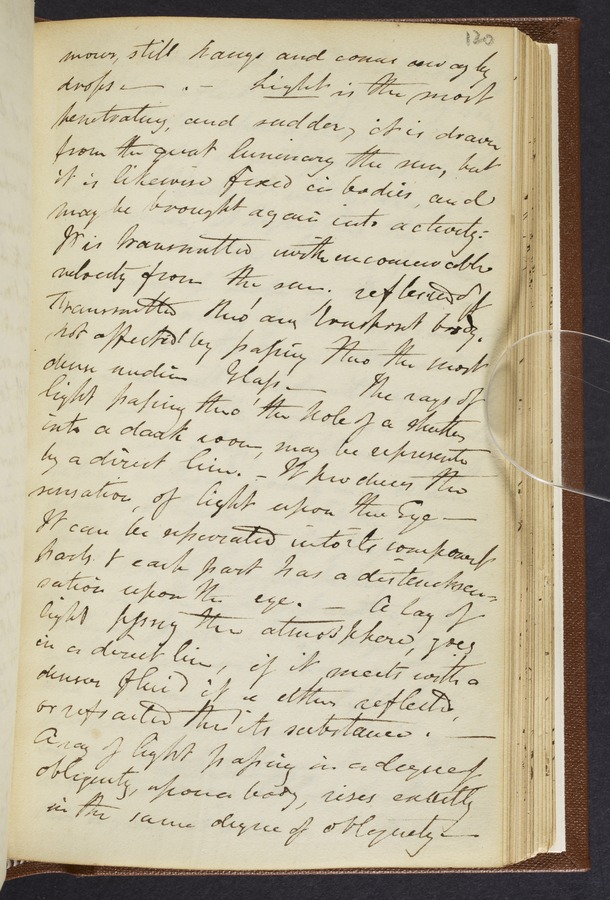 120
mours, still hangs and comes away by
drops — . — Light is the most
penetrating, and sudden, it is drawn
from the great luminary the sun, but
it is likewise fixed in bodies, and
may be brought again into activity.
It is transmitted with inconceivable
velocity from the sun. reflected off
Transmitted thro' any transparent body.
not affected by passing thro the most
dense medium Glass — The rays of
light passing thro' the hole of a shutter
into a dark room, may be represented
by a direct line. — It produces the
sensation, of light upon the Eye —
It can be separated into its component
parts & each part has a distinct sen-
sation upon the eye. — A Ray of
light passing thro atmosphere, goes
in a direct line, if it meets with a
denser fluid it is either reflected,
or refracted thro' its substance. —
A ray of light passing in a degree of
obliquity, upon a body, rises exactly
in the same degree of obliquity —